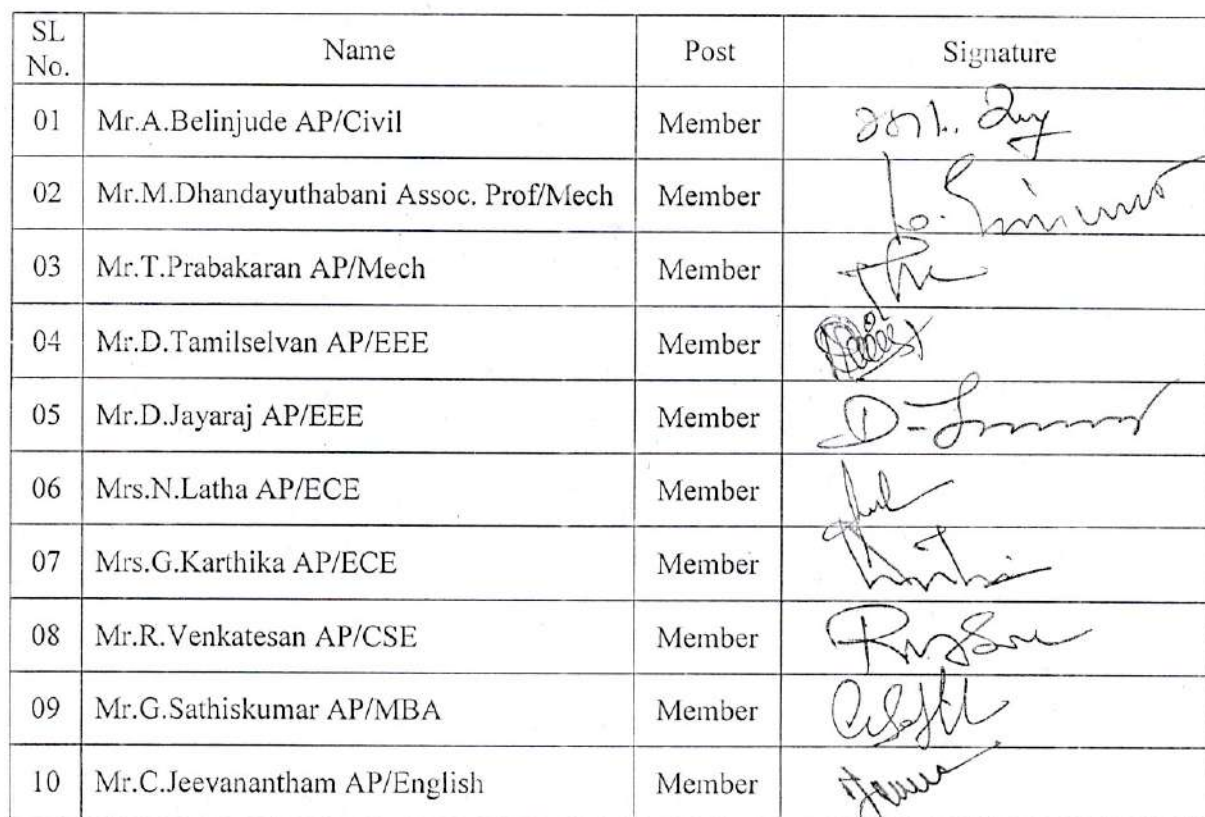 SL No. Name Post Signature
01 Mr.A.Belinjude AP/Civil Member
02 Mr.M.Dhandayuthabani Assoc. Prof/Mech Member
03 Mr.T.Prabakaran AP/Mech Member
04 Mr.D.Tamilselvan AP/EEE Member
05 Mr.D.Jayaraj AP/EEE Member
06 Mrs.N.Latha AP/ECE Member
07 Mrs.G.Karthika AP/ECE Member
08 Mr.R.Venkatesan AP/CSE Member
09 Mr.G.Sathiskumar AP/MBA Member
10 Mr.C.Jeevanantham AP/English Member